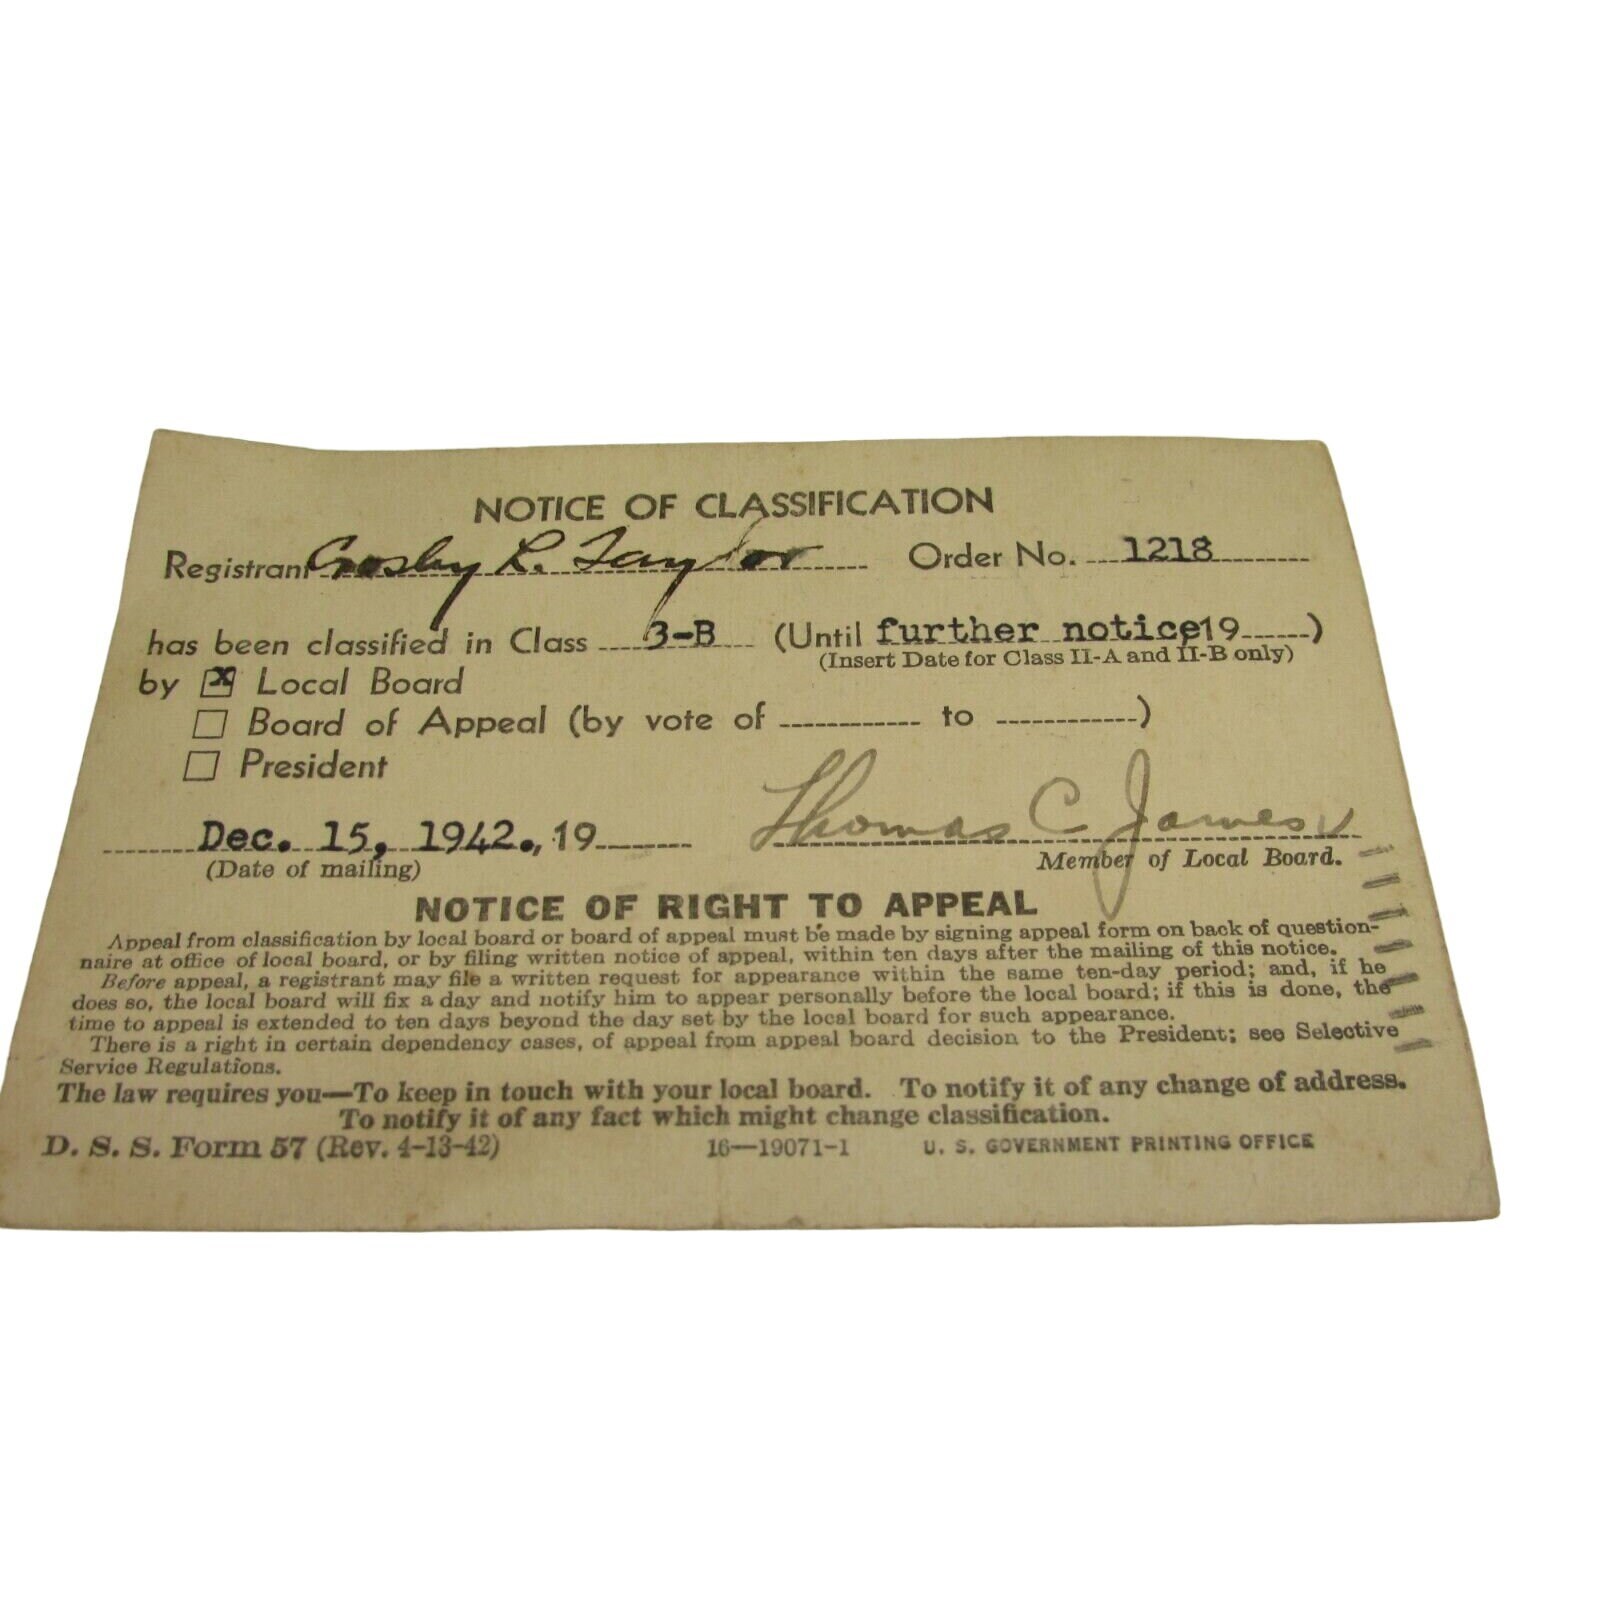 NOTICE OF CLASSIFICATION
Registrant Crosby R. Taylor Order No. 1218
has been classified in Class 3-B (Until further notice, 19 )
(Insert Date for Class II-A and II-B only)
by ☒ Local Board
☐ Board of Appeal (by vote of to )
☐ President
Dec. 15, 1942., 19 Thomas C James
(Date of mailing) Member of Local Board.
NOTICE OF RIGHT TO APPEAL
Appeal from classification by local board or board of appeal must be made by signing appeal form on back of question-
naire at office of local board, or by filing written notice of appeal, within ten days after the mailing of this notice.
Before appeal, a registrant may file a written request for appearance within the same ten-day period; and, if he
does so, the local board will fix a day and notify him to appear personally before the local board; if this is done, the
time to appeal is extended to ten days beyond the day set by the local board for such appearance.
There is a right in certain dependency cases, of appeal from appeal board decision to the President; see Selective
Service Regulations.
The law requires you—To keep in touch with your local board. To notify it of any change of address.
To notify it of any fact which might change classification.
D. S. S. Form 57 (Rev. 4-13-42) 16—19071-1 U. S. GOVERNMENT PRINTING OFFICE